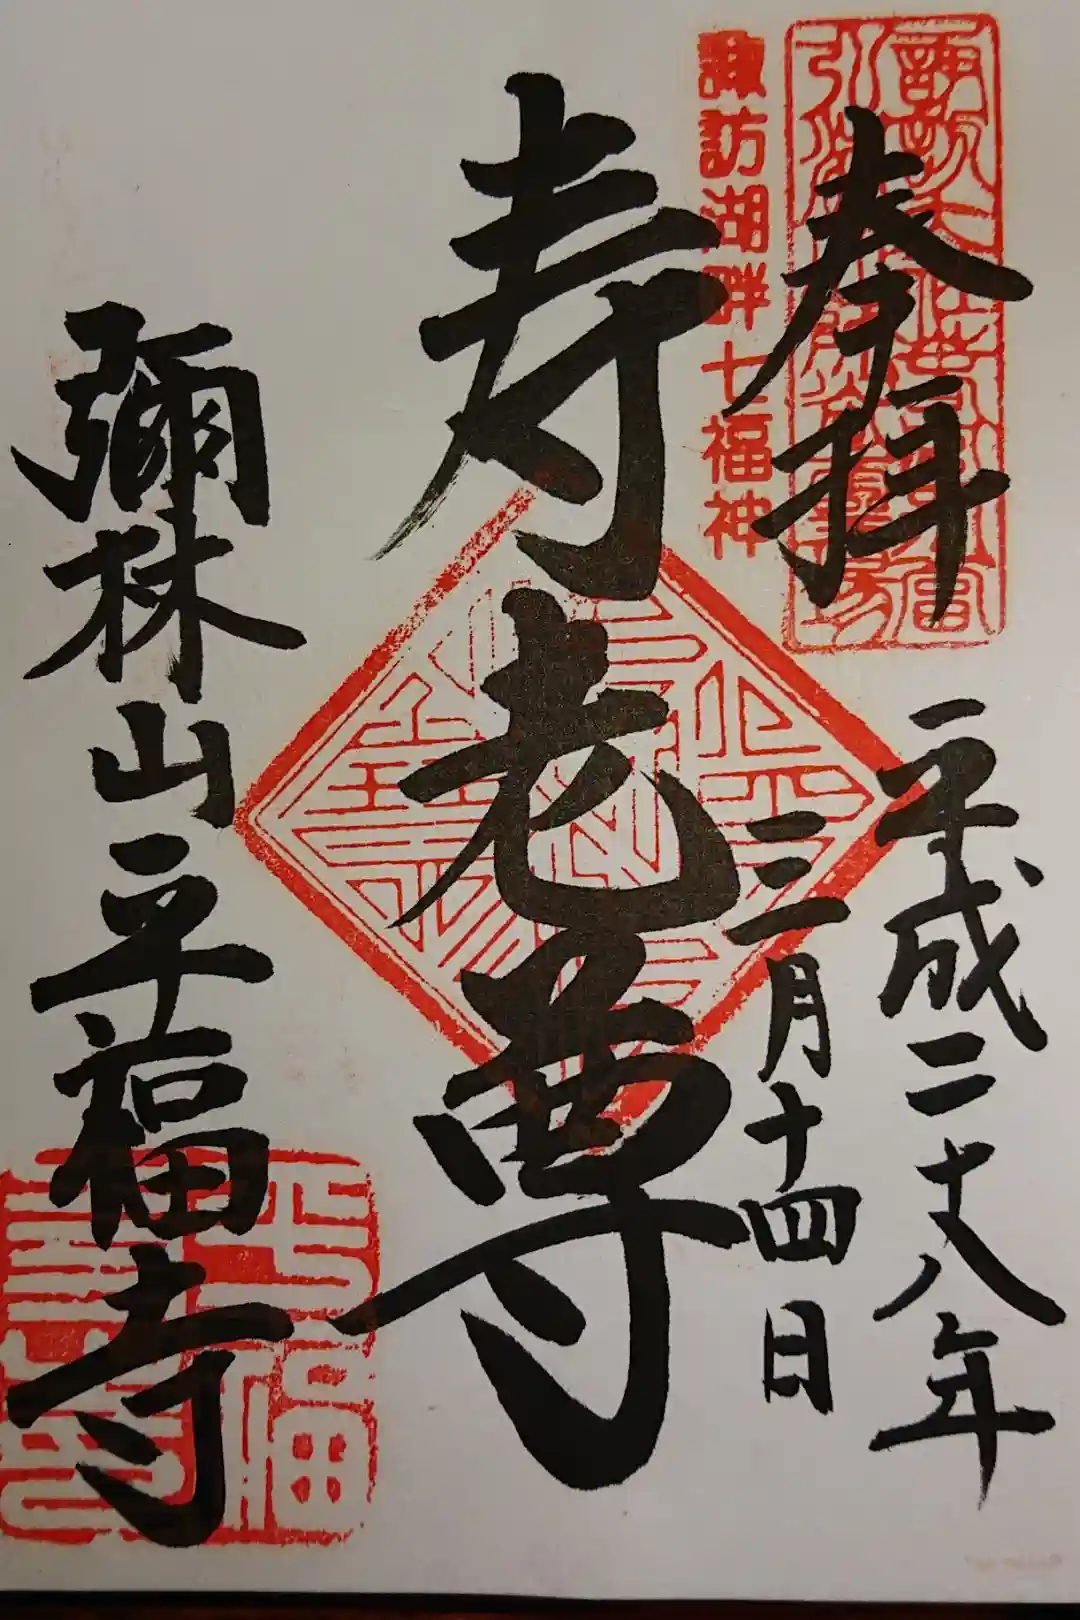 奉拝
平成二十八年
三月十四日
諏訪湖畔七福神
寿老尊
彌林山平福寺
平福